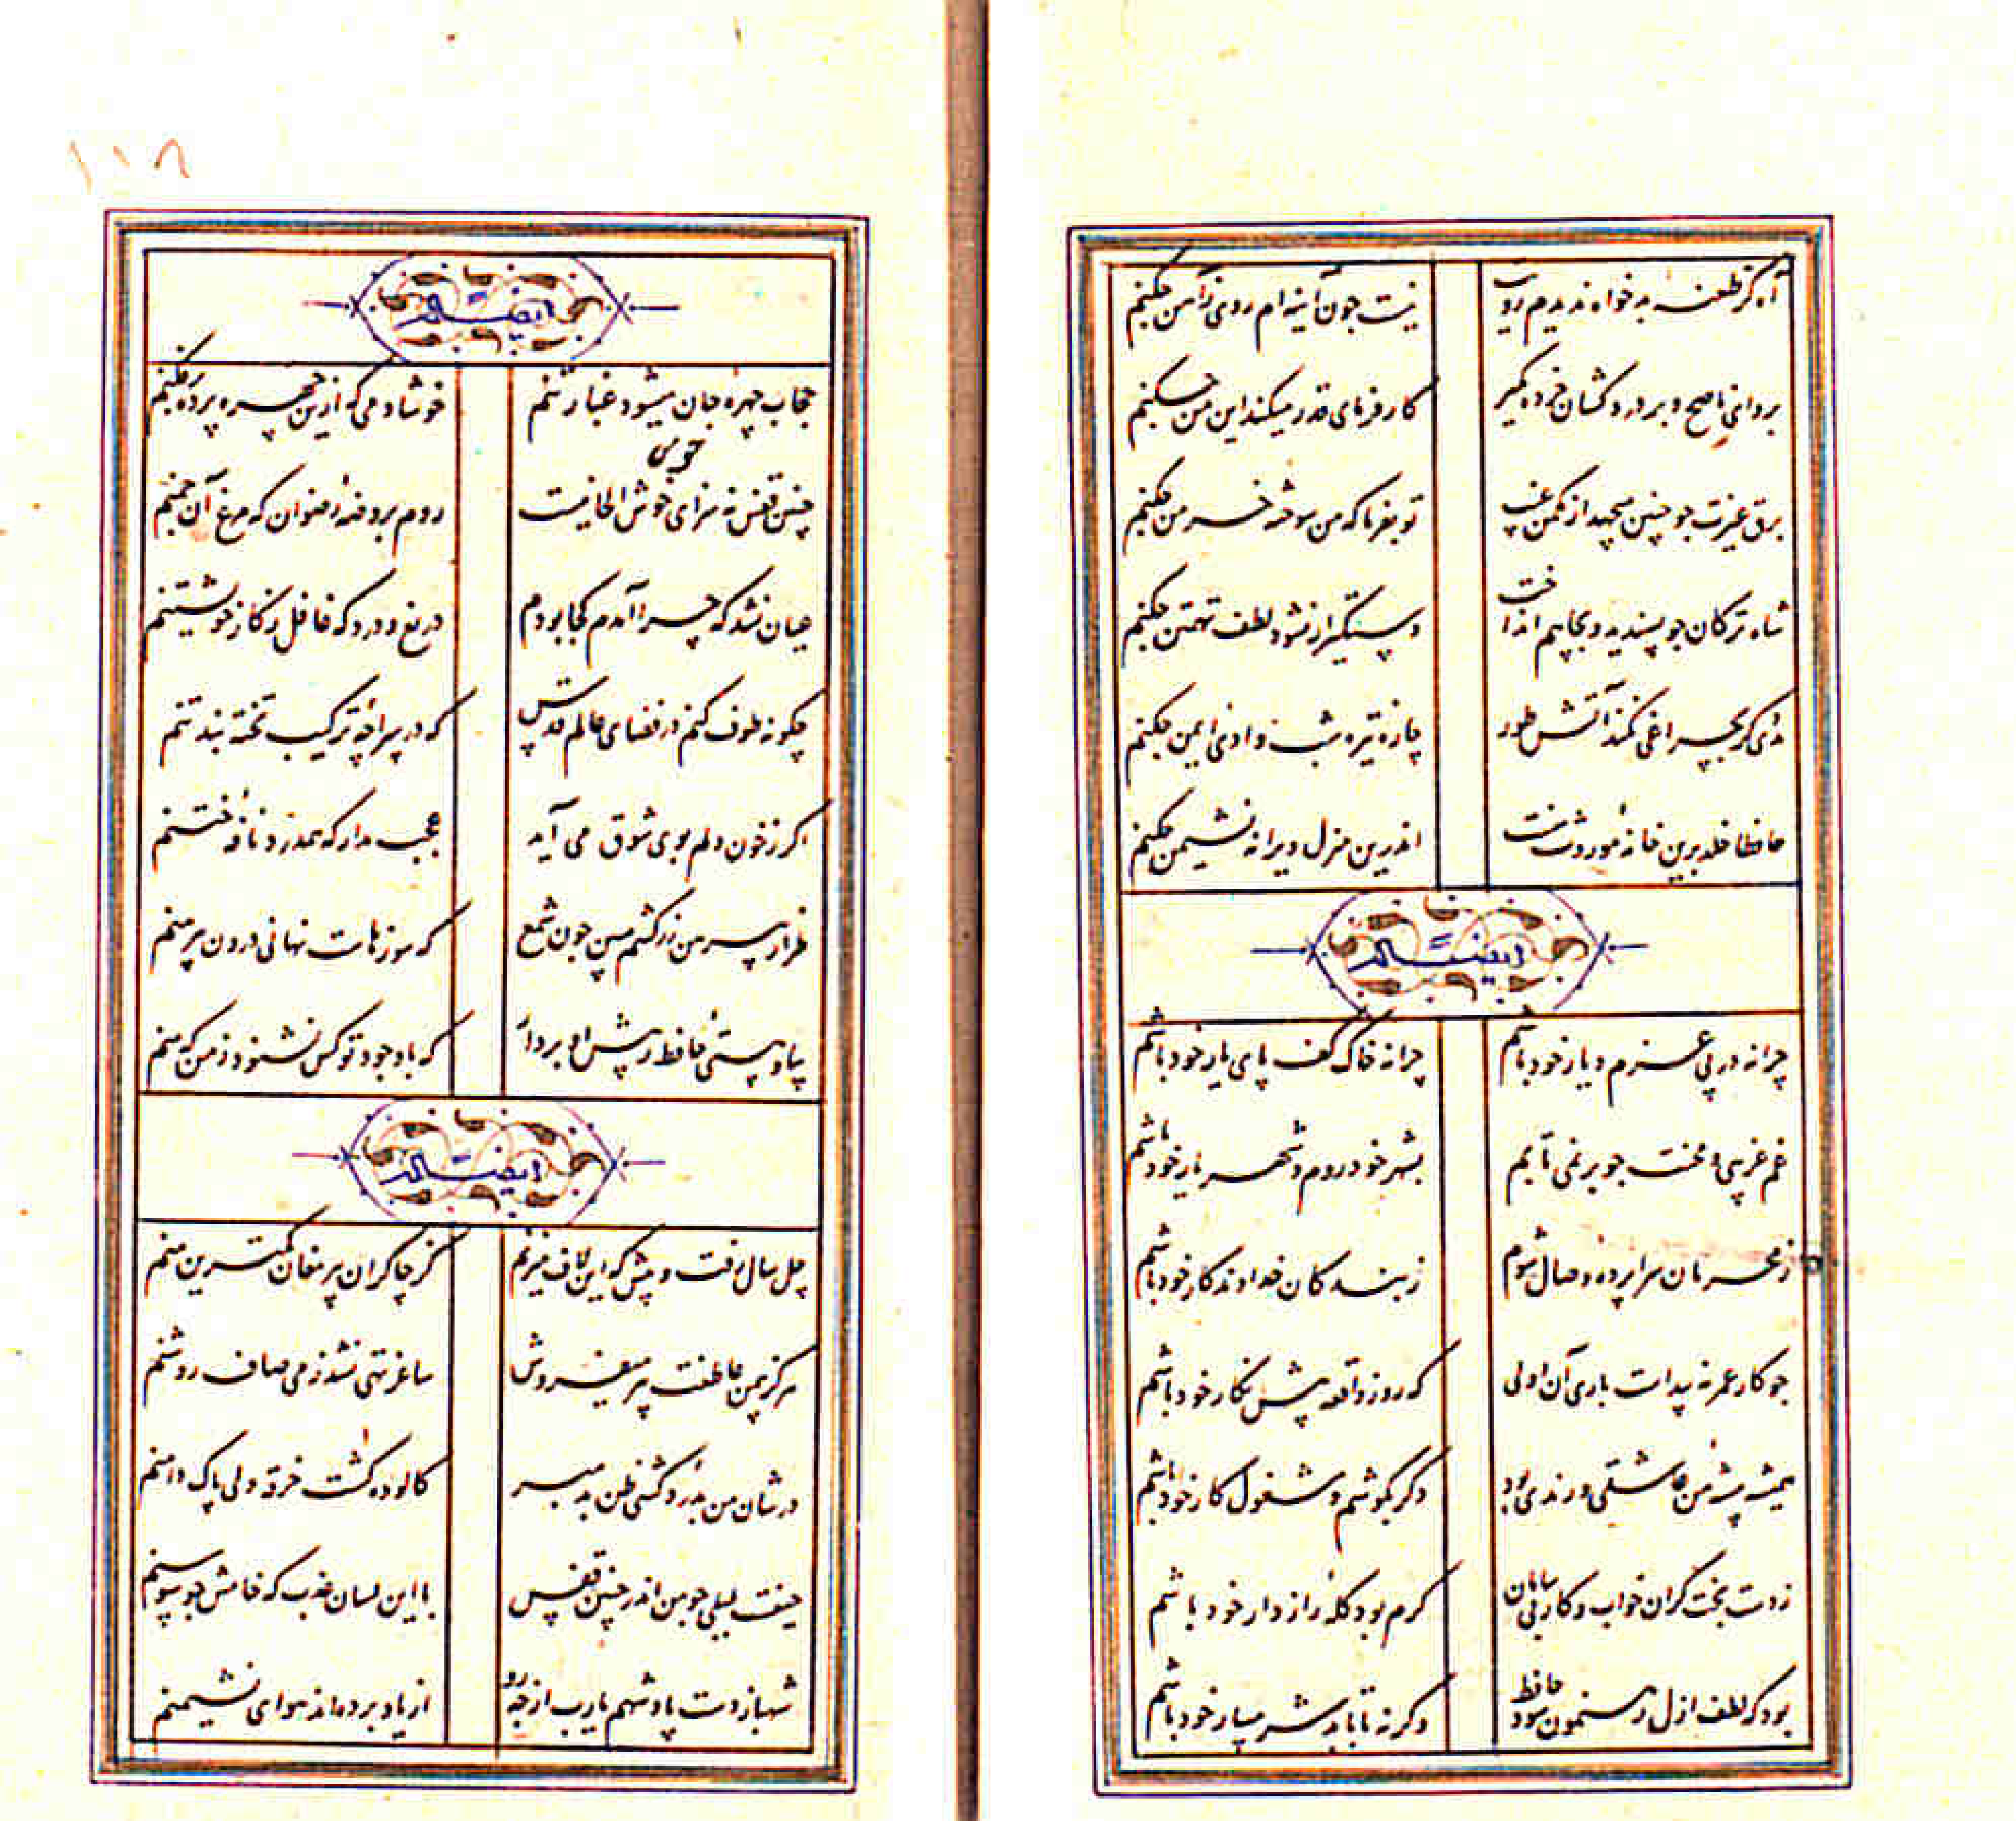 آه کز طعنهٔ بدخواه ندیدم رویت
نیست چون آینه‌ام روی ز آهن چکنم
برو ای ناصح و بر دردکشان خرده مگیر
کارفرمای قدر میکند این من چکنم
برق غیرت چو چنین میجهد از مکمن غیب
تو بفرما که من سوخته خرمن چکنم
شاه ترکان چو پسندید و بچاهم انداخت
دستگیر ار نشود لطف تهمتن چکنم
مددی گر بچراغی نکند آتش طور
چارهٔ تیره شب وادی ایمن چکنم
حافظا خلد برین خانهٔ موروث منست
اندرین منزل ویرانه نشیمن چکنم
ایضاً له
چرا نه در پی عزم دیار خود باشم
چرا نه خاک کف پای یار خود باشم
غم غریبی و محنت چو بر نمی تابم
بشهر خود روم و شهریار خود باشم
ز محرمان سراپردهٔ وصال شوم
ز بندگان خداوندگار خود باشم
چو کار عمر نه پیداست باری آن اولی
که روز واقعه پیش نگار خود باشم
همیشه پیشهٔ من عاشقی و رندی بود
دگر بکوشم و مشغول کار خود باشم
ز دست بخت گران خواب و کار بی سامان
گرم بود گلهٔ رازدار خود باشم
بود که لطف ازل رهنمون شود حافظ
وگرنه تا بابد شرمسار خود باشم
١١٨
ایضاً له
حجاب چهرهٔ جان میشود غبار تنم
خوشا دمی که ازین چهره پرده برفکنم
چنین قفس نه سزای خوش الحانیست
چو من
روم بروضهٔ رضوان که مرغ آن چمنم
عیان نشد که چرا آمدم کجا بودم
دریغ و درد که غافل ز کار خویشتنم
چگونه طوف کنم در فضای عالم قدس
که در سراچهٔ ترکیب تخته بند تنم
اگر ز خون دلم بوی شوق می آید
عجب مدار که همدرد نافهٔ ختنم
طراز پیرهن زرکشم مبین چون شمع
که سوزهاست نهانی درون پیرهنم
بیا و هستی حافظ ز پیش او بردار
که با وجود تو کس نشنود ز من که منم
ایضاً له
چل سال رفت و بیش که این لاف میزنم
کز چاکران پیر مغان کمترین منم
هرگز بیمن عاطفت پیر میفروش
ساغر تهی نشد ز می صاف روشنم
در شان من بدردکشی ظن بد مبر
کالوده گشت خرقه ولی پاک دامنم
حیفست بلبلی چو من اندر چنین قفس
با این لسان عذب که خامش چو سوسنم
شهباز دست پادشهم یارب از چه رو
از یاد برده‌اند هوای نشیمنم